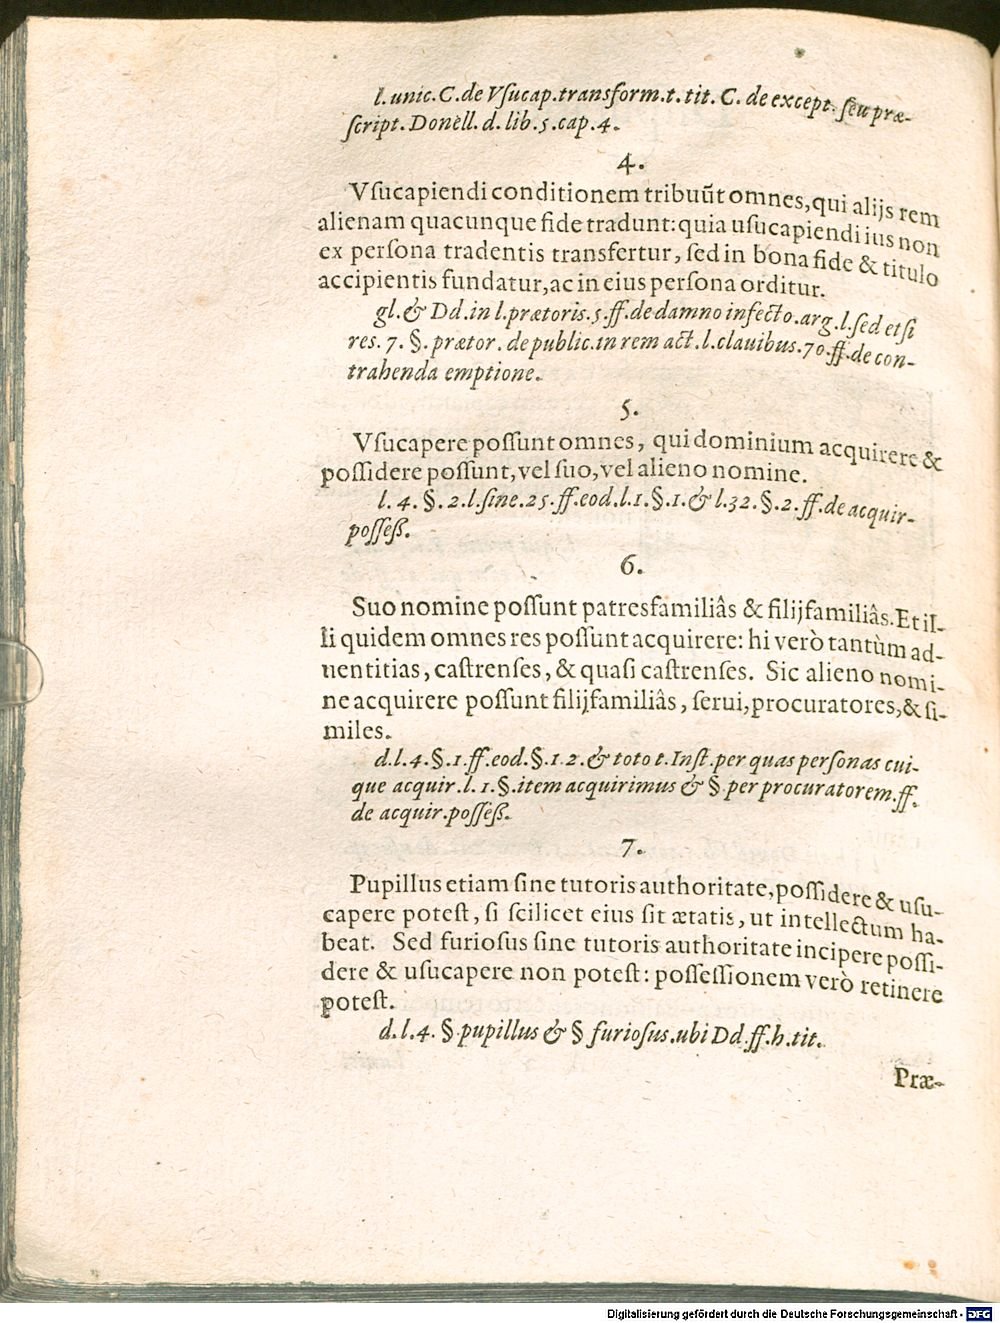 l. unic. C. de Vſucap. transform. t. tit. C. de except. ſeu præ-
ſcript. Donell. d. lib. 5. cap. 4.
4.
Vſucapiendi conditionem tribuũt omnes, qui alijs rem
alienam quacunque fide tradunt: quia uſucapiendi ius non
ex perſona tradentis transfertur, ſed in bona fide & titulo
accipientis fundatur, ac in eius perſona orditur.
gl. & Dd. in l. prætoris. 5. ff. de damno infecto. arg. l. ſed et ſi
res. 7. §. prætor. de public. in rem act. l. clauibus. 70. ff. de con-
trahenda emptione.
5.
Vſucapere poſſunt omnes, qui dominium acquirere &
poſſidere poſſunt, vel ſuo, vel alieno nomine.
l. 4. §. 2. l. ſine. 25. ff. eod. l. 1. §. 1. & l. 32. §. 2. ff. de acquir-
poſſeß.
6.
Suo nomine poſſunt patresfamiliâs & filijfamiliâs. Et il-
li quidem omnes res poſſunt acquirere: hi verò tantùm ad-
uentitias, caſtrenſes, & quaſi caſtrenſes. Sic alieno nomi-
ne acquirere poſſunt filijfamiliâs, ſerui, procuratores, & ſi-
miles.
d. l. 4. §. 1. ff. eod. §. 1. 2. & toto t. Inſt. per quas perſonas cui-
que acquir. l. 1. §. item acquirimus & § per procuratorem. ff.
de acquir. poſſeß.
7.
Pupillus etiam ſine tutoris authoritate, poſſidere & uſu-
capere poteſt, ſi ſcilicet eius ſit ætatis, ut intellectum ha-
beat. Sed furioſus ſine tutoris authoritate incipere poſſi-
dere & uſucapere non poteſt: poſſeſſionem verò retinere
poteſt.
d. l. 4. § pupillus & § furioſus. ubi Dd. ff. h. tit.
Præ-
Digitalisierung gefördert durch die Deutsche Forschungsgemeinschaft - DFG